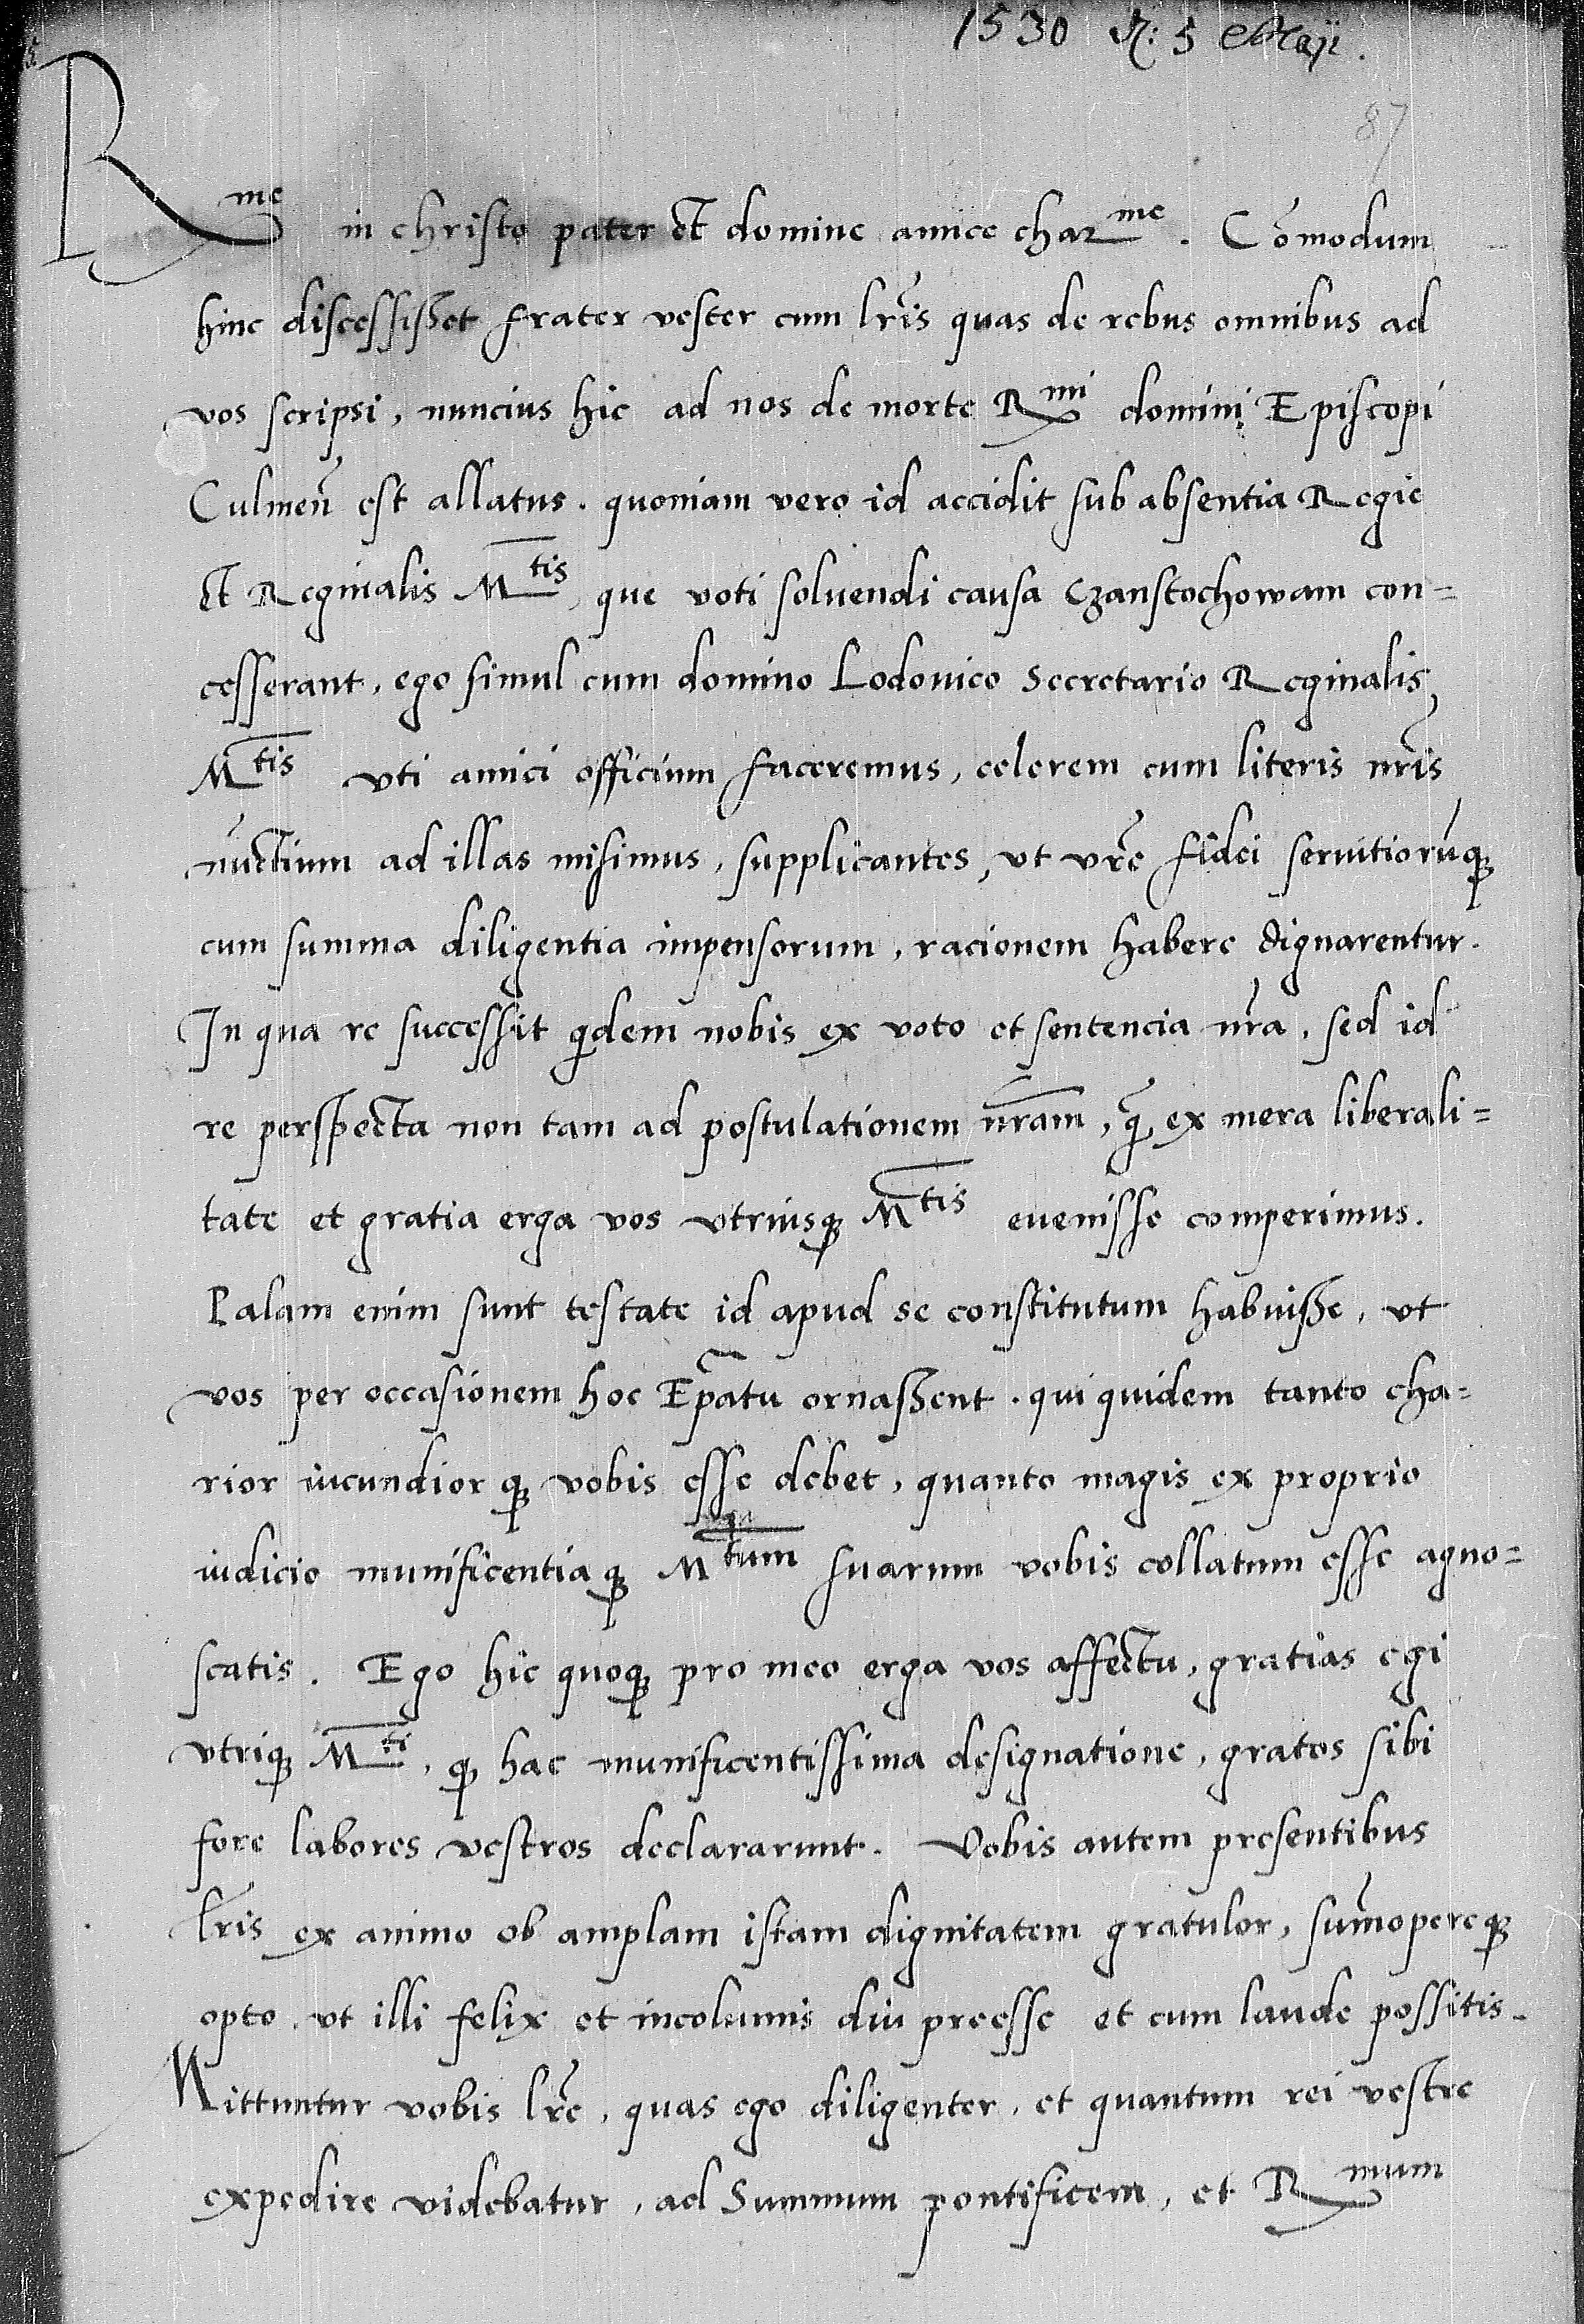 1530 R: 5 Maji.
87
R^me in christo pater et domine amice char^me. Cõmodum
hinc discessisset frater vester cum lr̃is quas de rebus omnibus ad
vos scripsi, nuncius hic ad nos de morte R^mi domini Episcopi
Culmeñ est allatus. quoniam vero id accidit sub absentia Regie
et Reginalis M^tis, que voti soluendi causa Czanstochowam con=
cesserant, ego simul cum domino Lodouico Secretario Reginalis
M^tis vti amici officium faceremus, celerem cum literis nr̃is
nũctium ad illas misimus, supplicantes, vt vr̃e fidei seruitiorũq3
cum summa diligentia impensorum, racionem habere dignarentur.
In qua re successit qdem nobis ex voto et sentencia nr̃a, sed id
re perspecta non tam ad postulationem nr̃am, q̃ ex mera liberali=
tate et gratia erga vos vtriusq3 M^tis euenisse comperimus.
Palam enim sunt testate id apud se constitutum habuisse, vt
vos per occasionem hoc Ep̃atu ornassent. qui quidem tanto cha=
rior iucundiorq3 vobis esse debet, quanto magis ex proprio
iudicio munificentiaq3 M^tum suarum vobis collatum esse agno=
scatis. Ego hic quoq3 pro meo erga vos affectu, gratias egi
vtriq3 M^ti, q3 hac munificentissima designatione, gratos sibi
fore labores vestros declararunt. Vobis autem presentibus
lr̃is ex animo ob amplam istam dignitatem gratulor, sum̃opereq3
opto, vt illi felix et incolumis diu preesse et cum laude possitis.
Mittuntur vobis lr̃e, quas ego diligenter, et quantum rei vestre
expedire videbatur, ad Summum pontificem, et R^mum